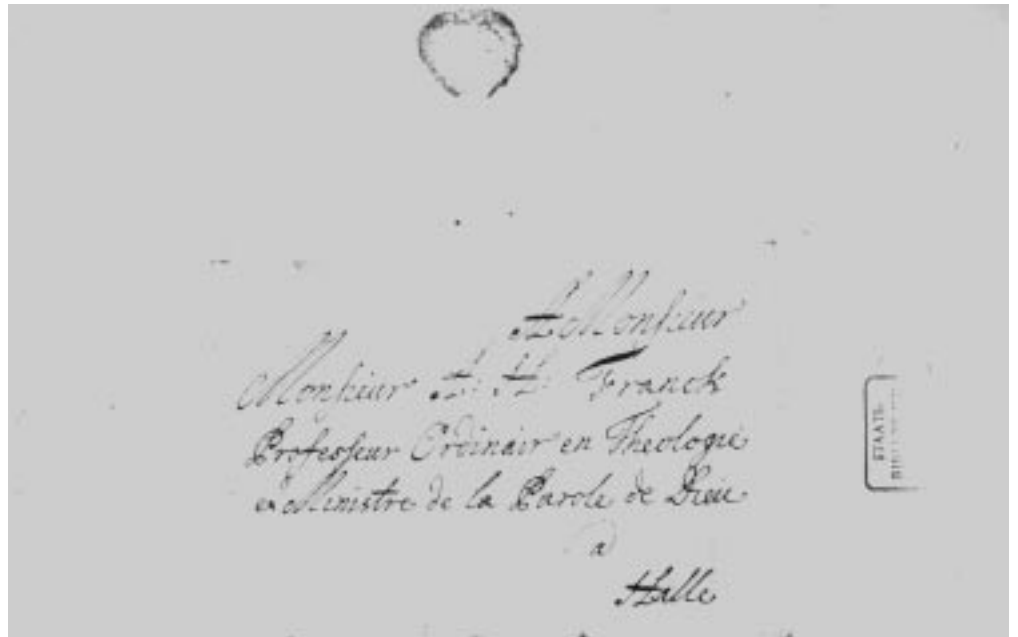 A Monsieur
Monsieur A. H. Franck
Professeur Ordinair en Theologie
et Ministre de la Parole de Dieu
a
Halle
STAATS-